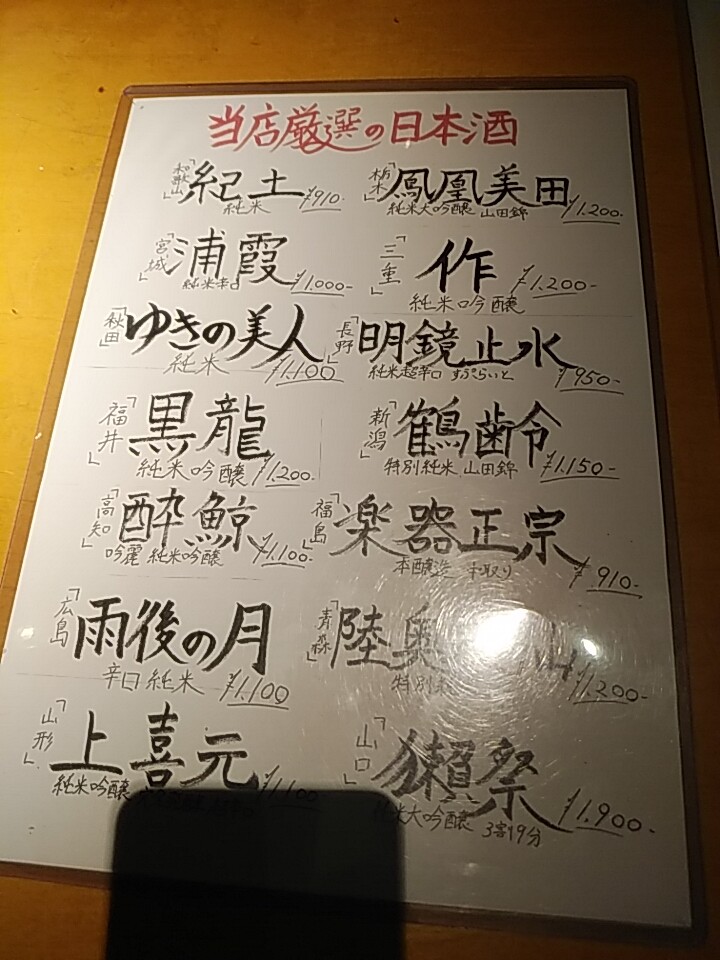 当店厳選の日本酒
「和歌山」 紀土 純米 ¥910-
「栃木」 鳳凰美田 純米大吟醸 山田錦 ¥1.200-
「宮城」 浦霞 純米辛口 ¥1.000-
「三重」 作 純米吟醸 ¥1.200-
「秋田」 ゆきの美人 純米 ¥1.100
「長野」 明鏡止水 純米超辛口 すぷらいと ¥950-
「福井」 黒龍 純米吟醸 ¥1.200-
「新潟」 鶴齢 特別純米 山田錦 ¥1.150-
「高知」 酔鯨 吟麗 純米吟醸 ¥1.100-
「福島」 楽器正宗 本醸造 中取り ¥910-
「広島」 雨後の月 辛口純米 ¥1.100
「青森」 陸奥 特別 ¥1.200-
「山形」 上喜元 純米吟醸 ¥1.100
「山口」 獺祭 純米大吟醸 3割9分 ¥1.900-